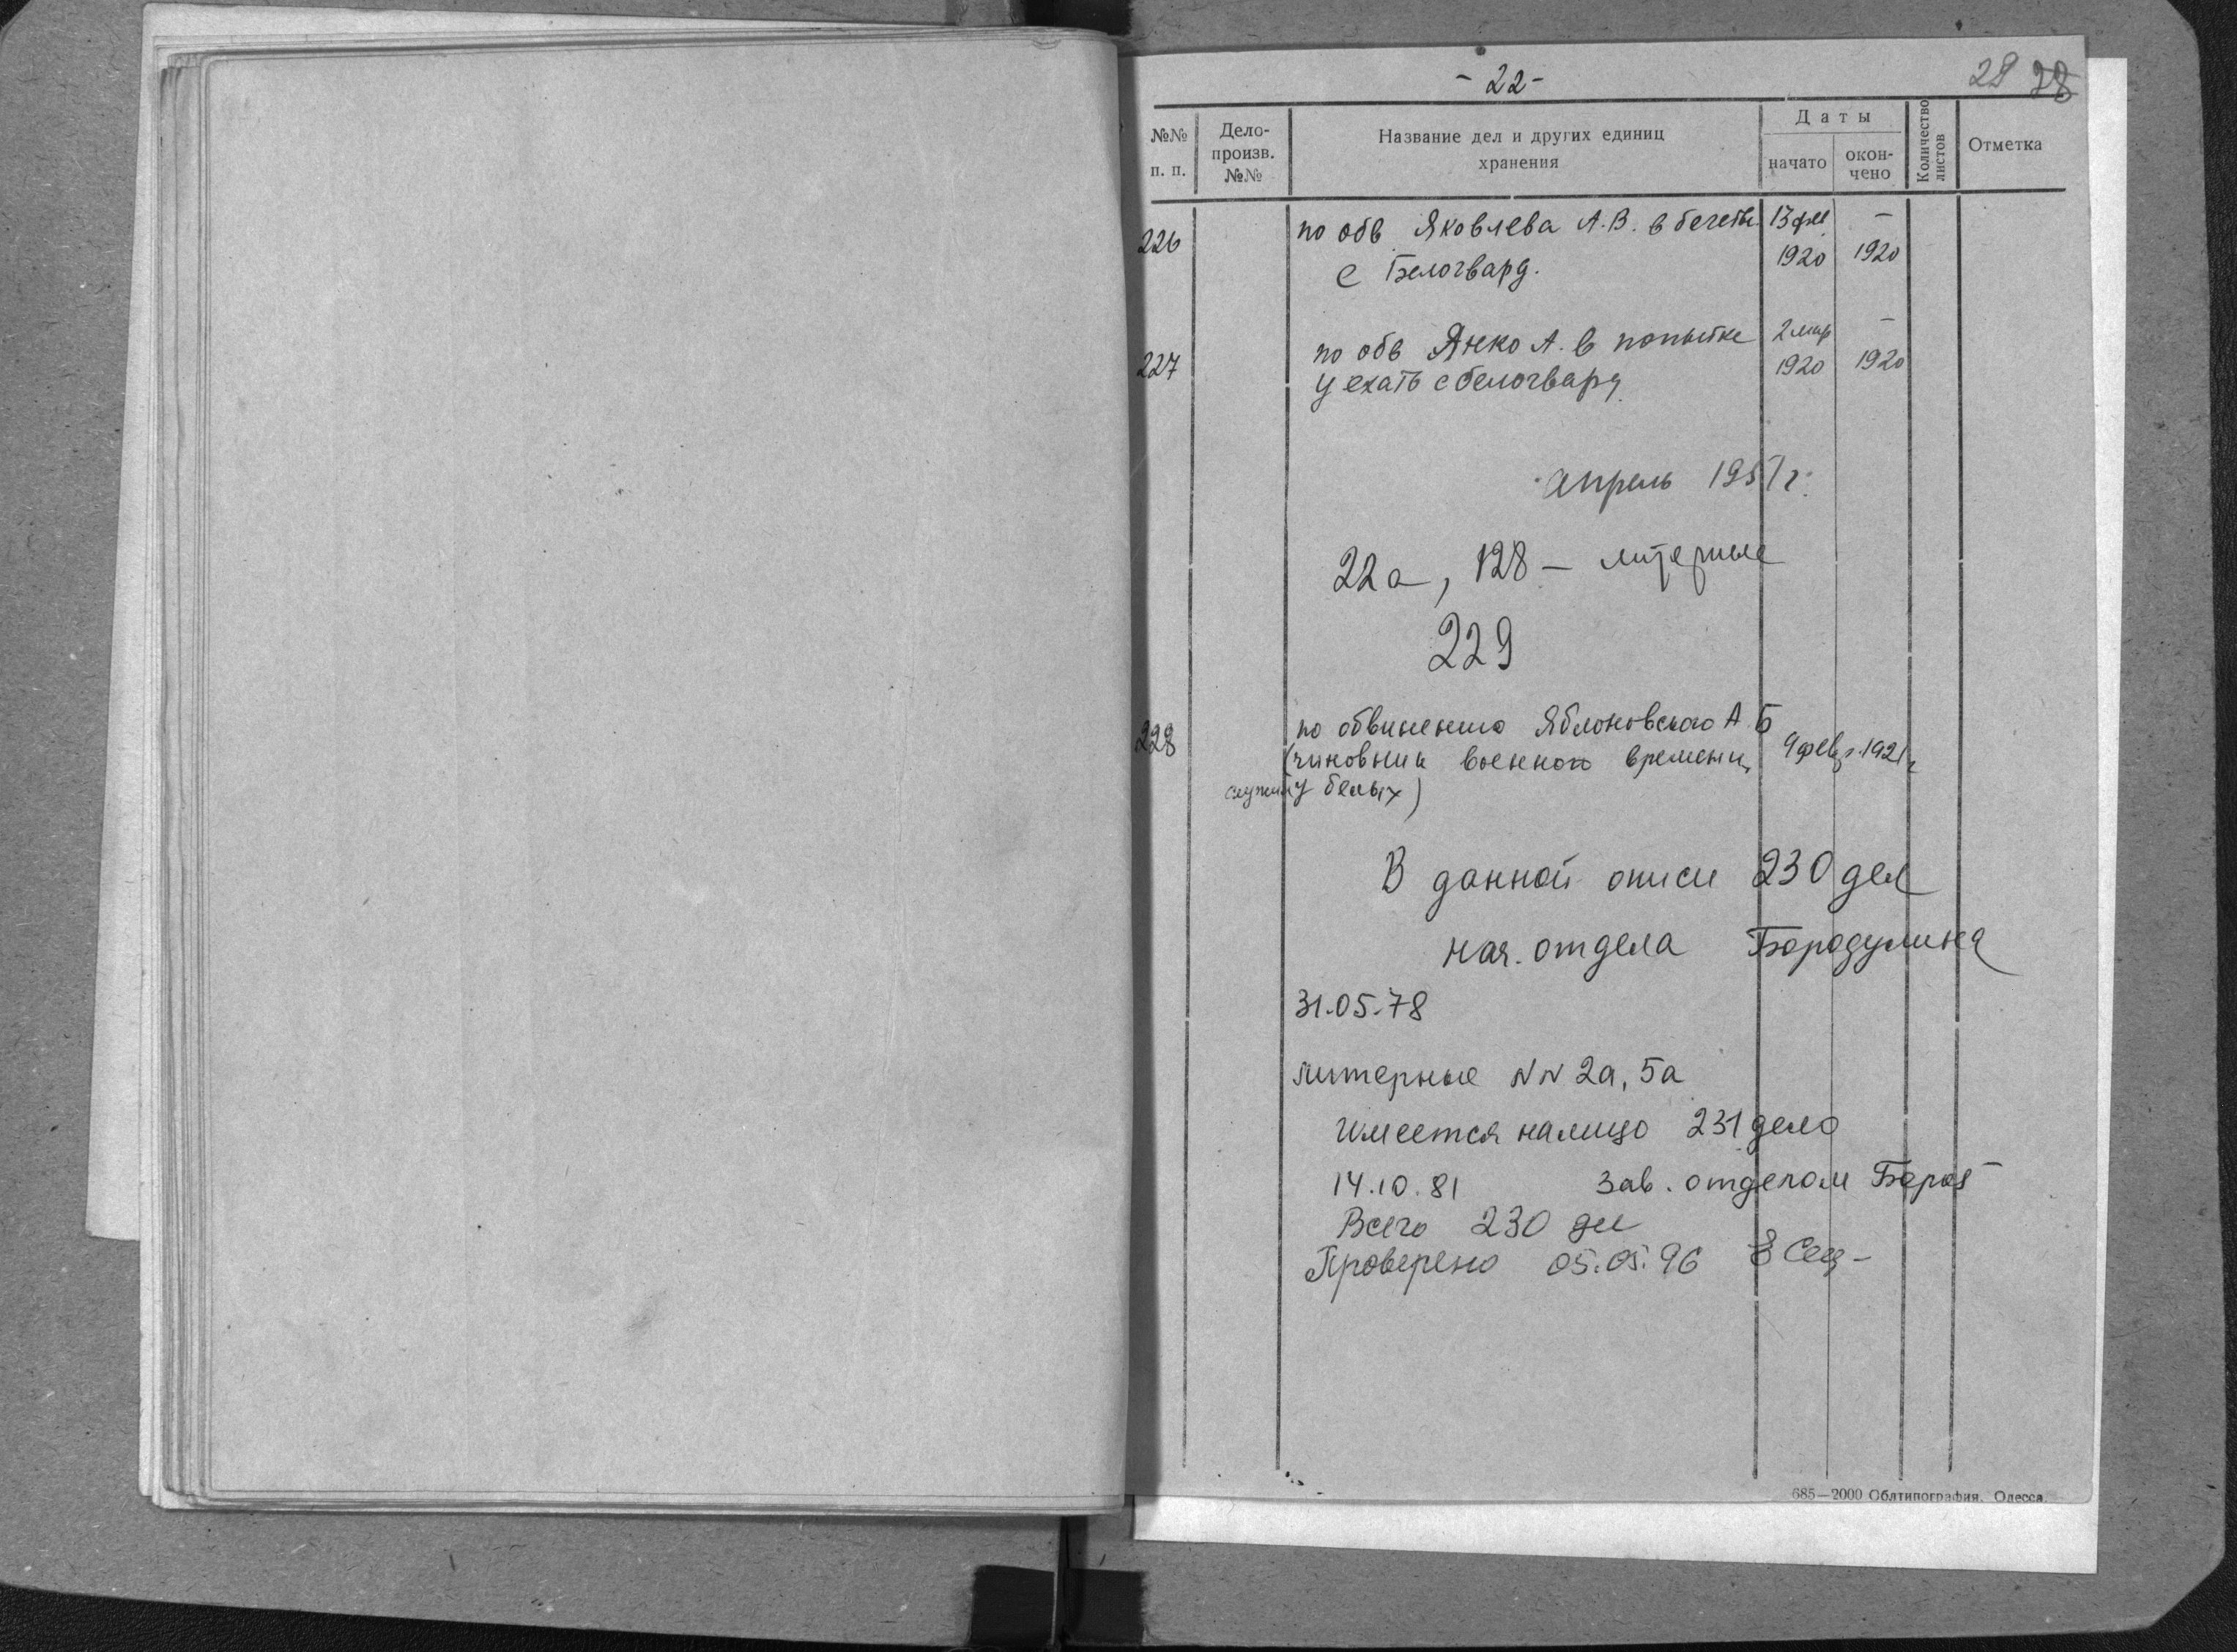 - 22 -
28 28
№№ п. п.
Дело-произв. №№
Название дел и других единиц хранения
Даты
начато
окон-чено
Количество листов
Отметка
226 по обв Яковлева А.В. в бегств. 13 фев. –
с Белогвард. 1920 1920
227 по обв Янко А. в попытке 2 мар –
уехать с белогвард. 1920 1920
апрель 1957 г.
22а, 128 – литерные
229
228 по обвинению Яблоновского А.Б
(чиновник военного времени, 9 февр. 1921 г
служил у белых)
В данной описи 230 дел
нач. отдела Бородулина
31.05.78
литерные NN 2а, 5а
имеется налицо 231 дело
14.10.81 Зав. отделом Бород
Всего 230 дел
Проверено 05.05.96
685—2000 Облтипография. Одесса.